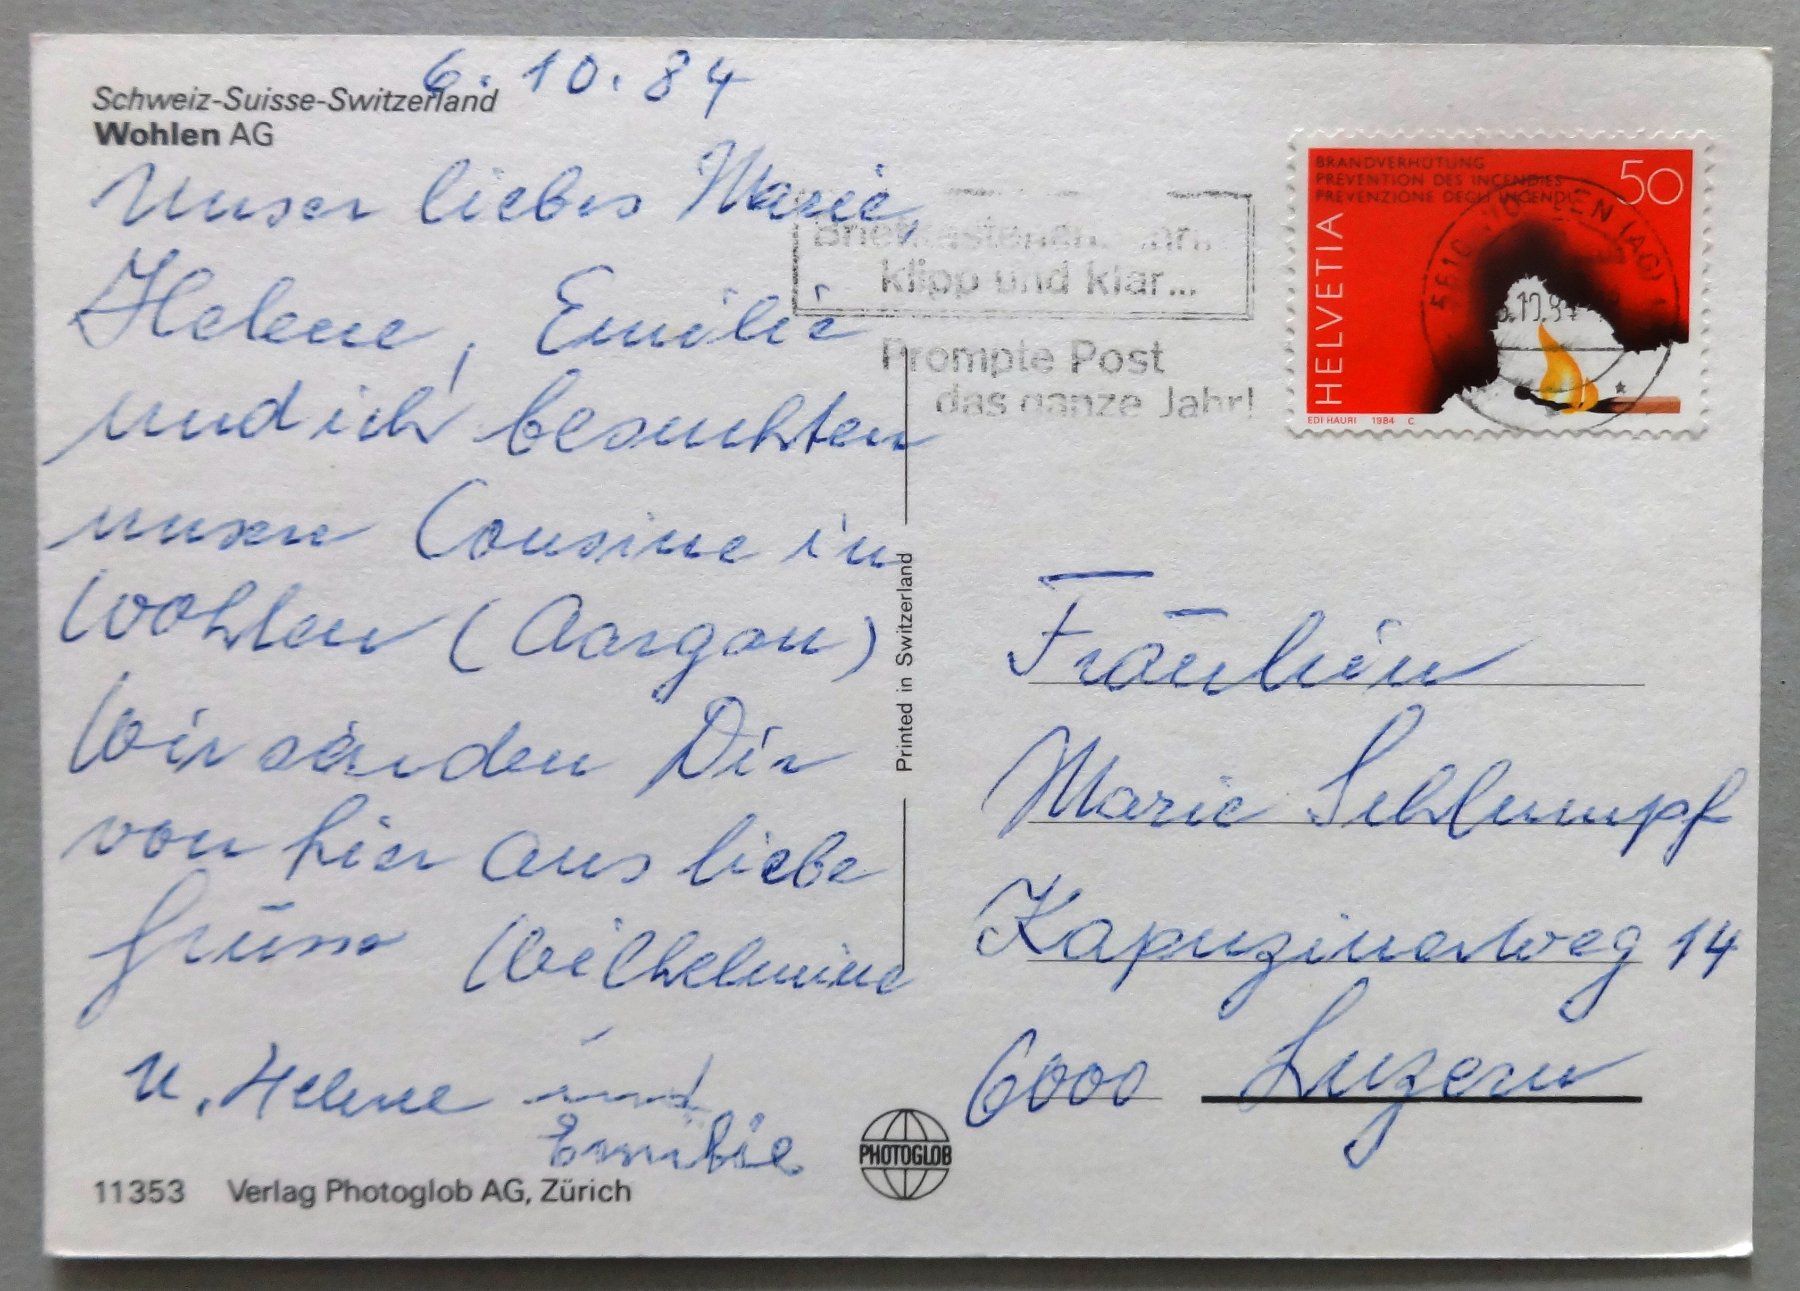 6.10.84
Schweiz-Suisse-Switzerland
Wohlen AG
Unser liebes Marie,
Helene, Emilie
und ich besuchten
unsere Cousine in
Wohlen (Aargau)
Wir senden Dir
von hier aus liebe
Grüsse Wilhelmine
u. Helene und
Emilie
11353 Verlag Photoglob AG, Zürich
Printed in Switzerland
PHOTOGLOB
klipp und klar...
Prompte Post
das ganze Jahr!
BRANDVERHÜTUNG
PREVENTION DES INCENDIES
PREVENZIONE DEGLI INCENDI
50
HELVETIA
EDI HAURI 1984 C
5610 WOHLEN (AG) 1
6.10.84
Fräulein
Marie Schlumpf
Kapuzinerweg 14
6000 Luzern